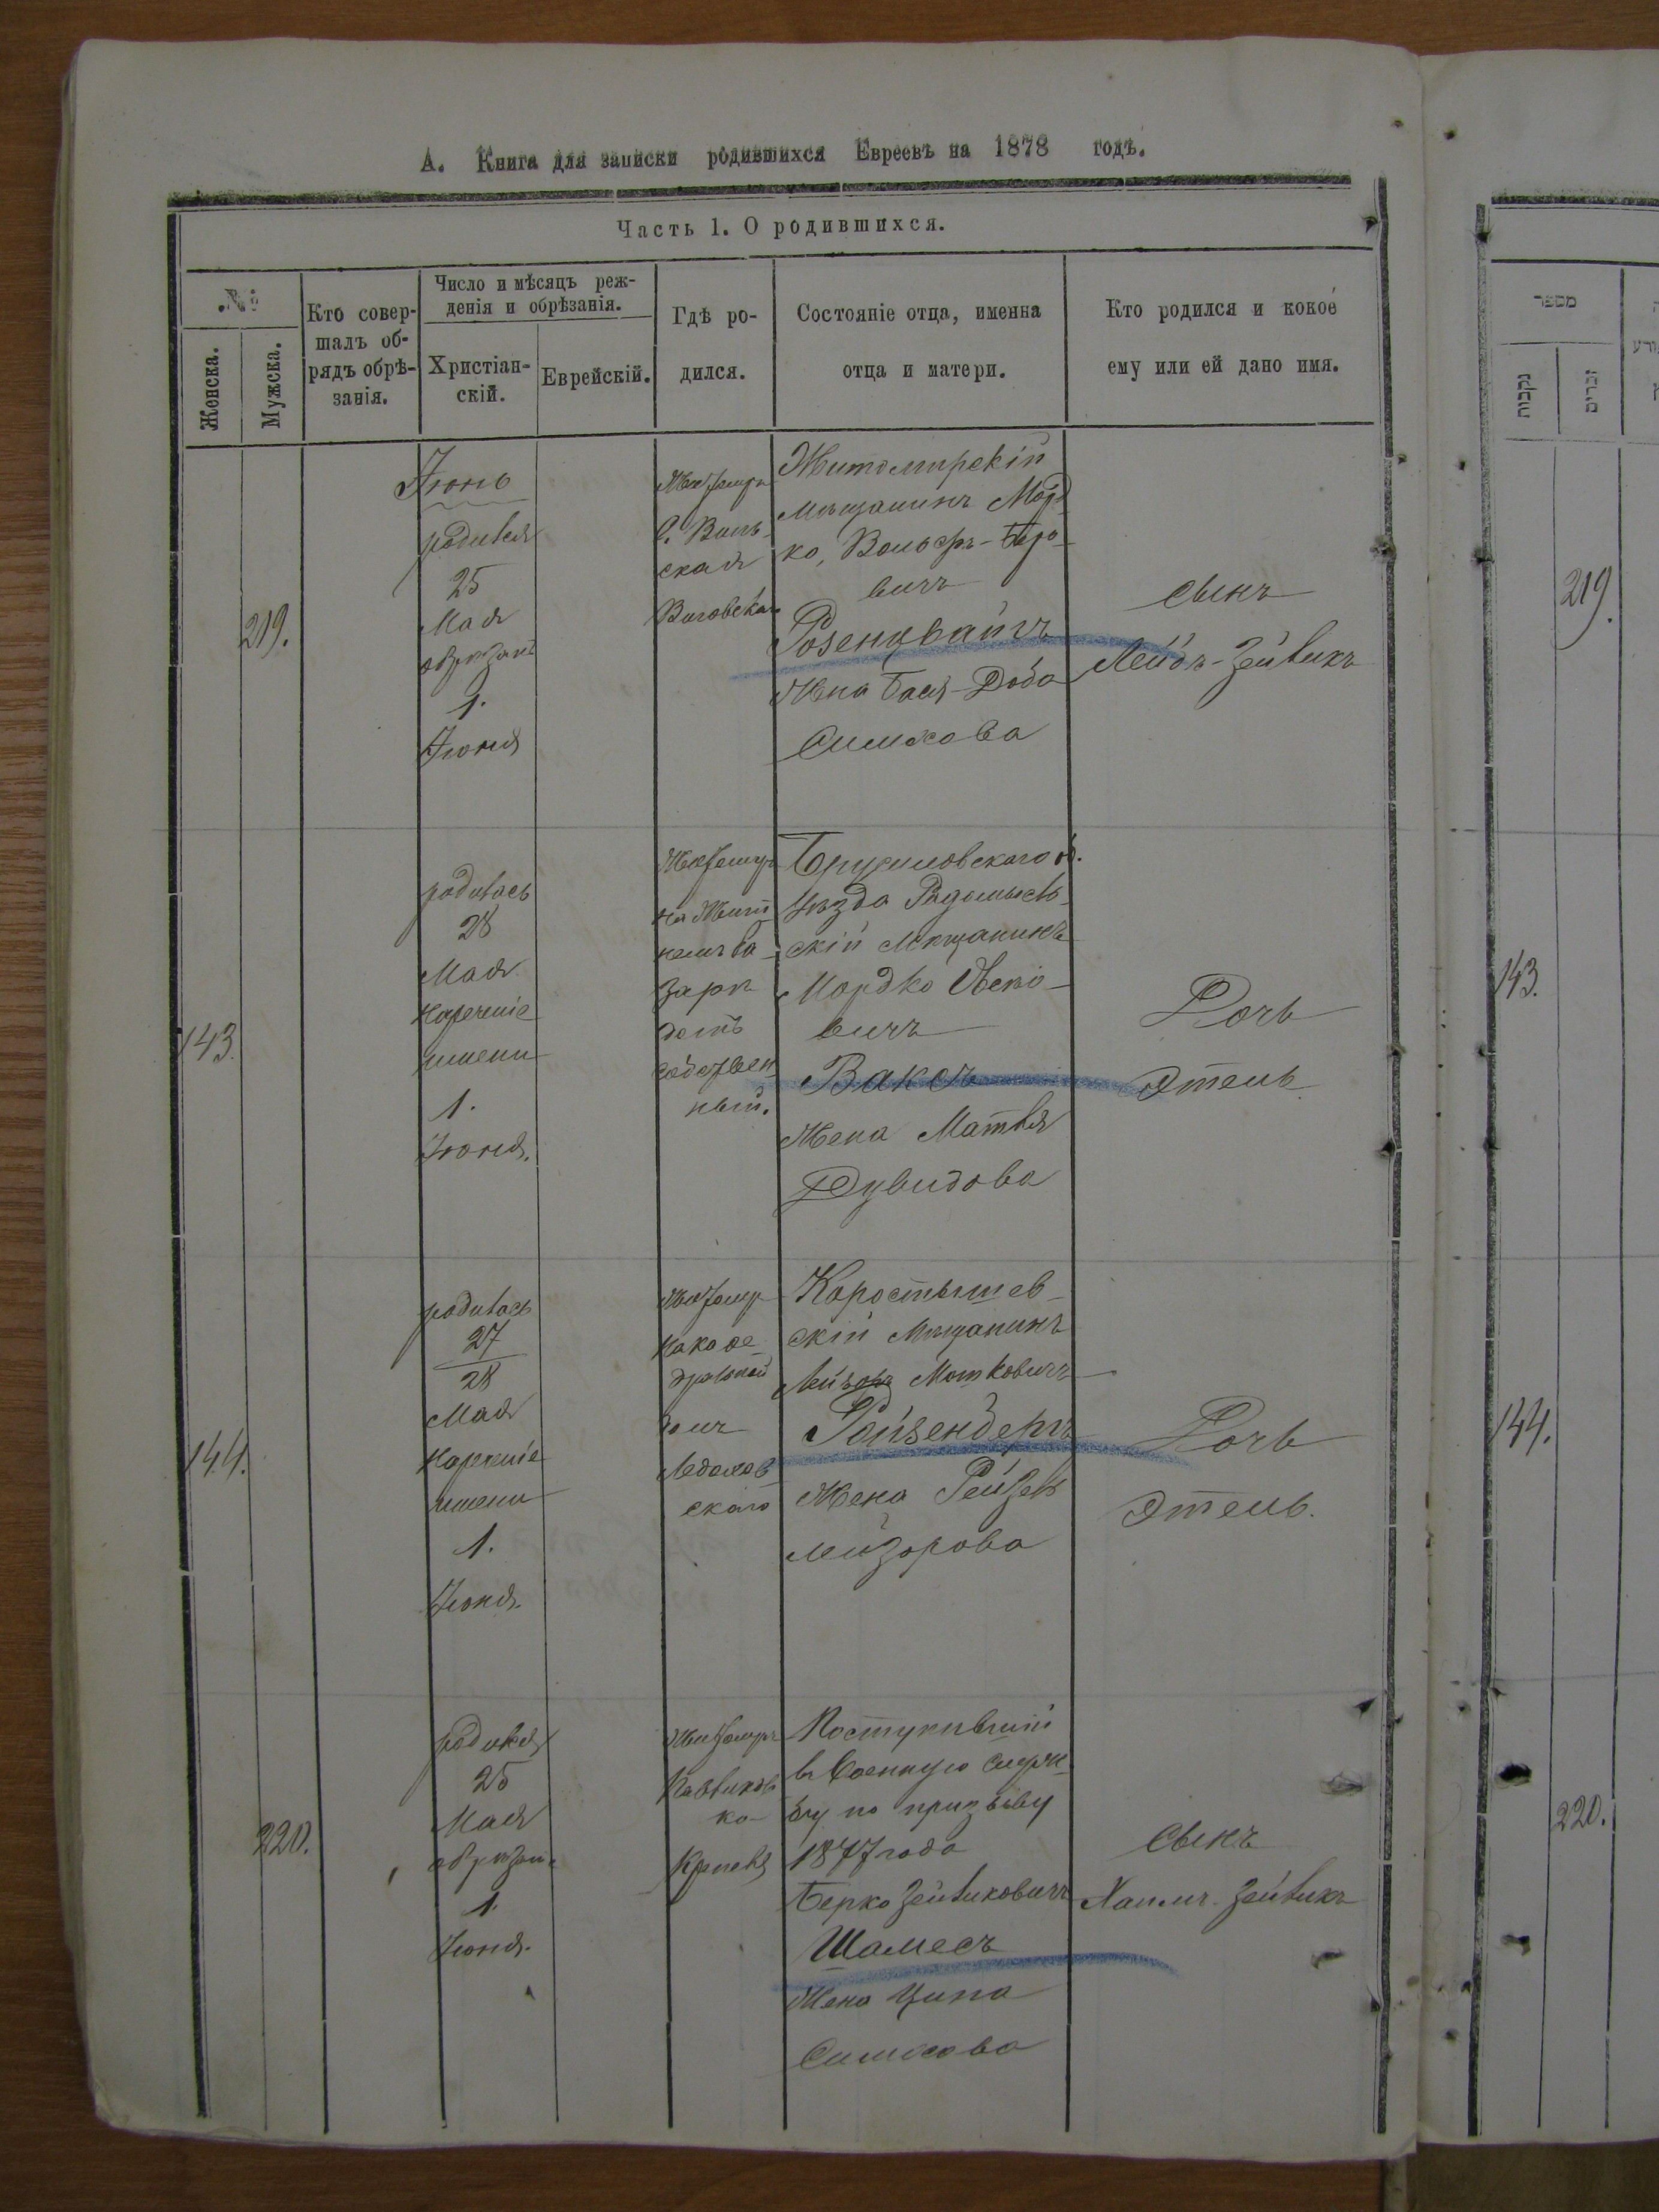 А. Книга для записки родившихся Евреевъ на 1878 годъ.
Часть 1. О родившихся.
№
Женска.
Мужска.
Кто совер-
шалъ об-
рядъ обрѣ-
занія.
Число и мѣсяцъ реж-
денія и обрѣзанія.
Христіан-
скій.
Еврейскій.
Гдѣ ро-
дился.
Состояніе отца, именна
отца и матери.
Кто родился и кокое
ему или ей дано имя.
219.
Іюнь
родился
25
Мая
обрѣзанъ
1.
Іюня
Житомиръ
ская
Житомирскій
мѣщанинъ Морд
ко, Вольфъ-Беро-
вичъ
Розенцвайгъ
Жена Бася-Доба
Симхова
сынъ
Лейбъ-Зейликъ
143.
родилась
28
Мая
нареченіе
имени
1.
Іюня.
Житомиръ
на Жит
номъ ба-
зарѣ
домъ
собствен
ный.
Брусиловскаго об.
Уѣзда Радомысль-
скій мѣщанинъ
Мордко
вичъ
Ваксъ
Жена Матля
Дувидова
Дочь
Этель
144.
родилась
27
28
Мая
нареченіе
имени
1.
Іюня.
Житомир
на каѳе-
дральной
домъ
скаго
Коростышев-
скій мѣщанинъ
Мошковичъ
Ройзенбергъ
Жена Рейзель
Лейзорова
Дочь
Этель.
220.
родился
25
Мая
обрѣзанъ
1.
Іюня.
Житомиръ
Павликов
ка
Поступившій
въ Военную служ-
бу по призыву
1877 года
Берко Зейликовичъ
Шамесъ
Жена Ципа
Симхова
Сынъ
Хаимъ-Зейликъ
מספר
נקבות
זכרים
219.
143.
144.
220.